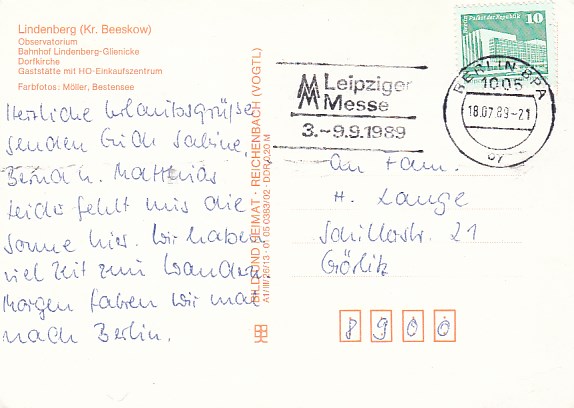 Lindenberg (Kr. Beeskow)
Observatorium
Bahnhof Lindenberg-Glienicke
Dorfkirche
Gaststätte mit HO-Einkaufszentrum
Farbfotos: Möller, Bestensee
Herzliche Urlaubsgrüße
senden Euch Sabine,
Bernd u. Matthias
Leider fehlt uns die
Sonne hier. Wir haben
viel Zeit zum Wandern.
Morgen fahren wir mal
nach Berlin.
BILD UND HEIMAT · REICHENBACH (VOGTL)
A1/III/26/13 · 01 05 0363/02 · DDR 0,20 M
Leipziger
Messe
3.–9.9.1989
Berlin Palast der Republik
10
BERLIN BPA
1005
18.07.89-21
An Fam.
H. Lange
Schillerstr. 21
Görlitz
8900